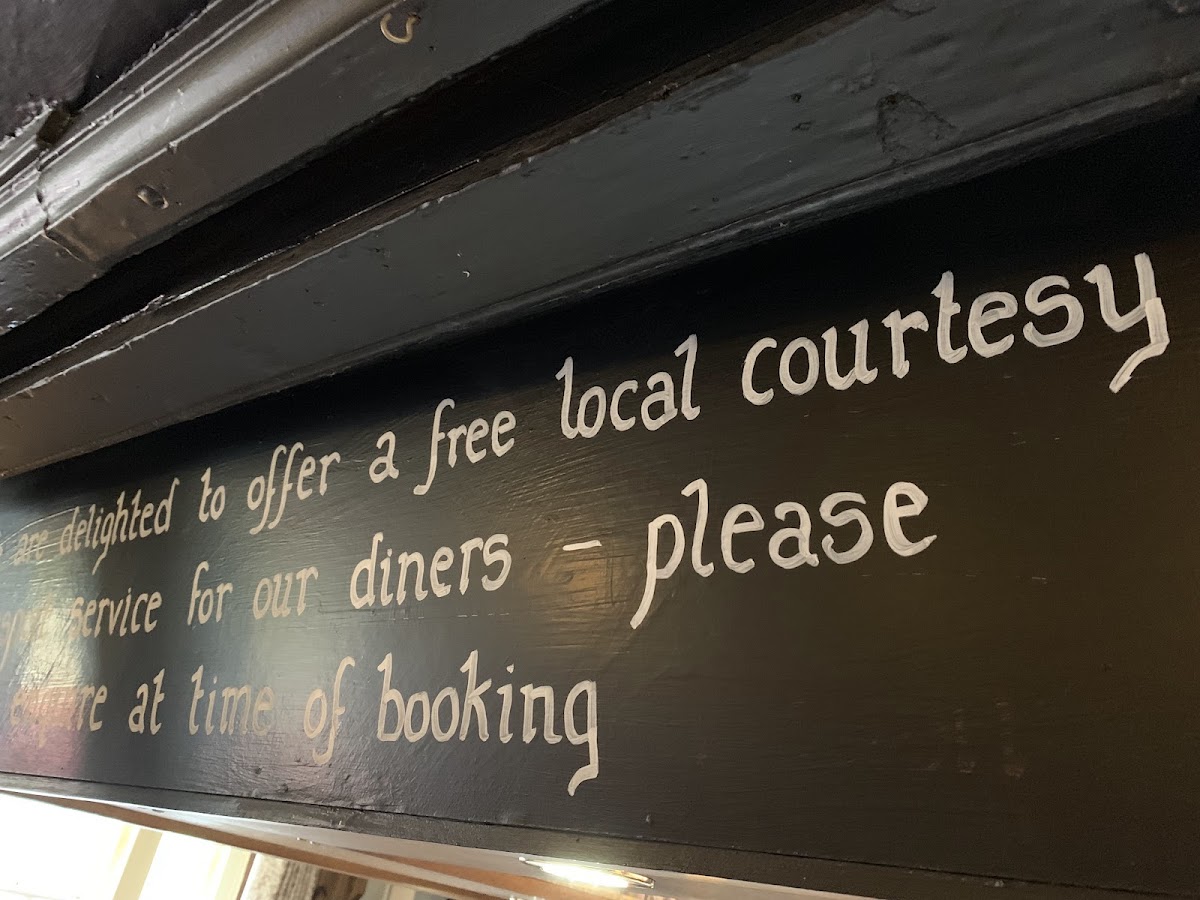 are delighted to offer a free local courtesy
service for our diners – please
enquire at time of booking